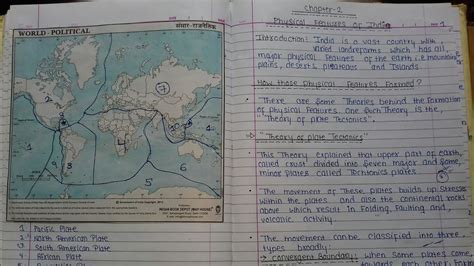 WORLD - POLITICAL
संसार-राजनैतिक
1
2
3
4
5
6
7
INDIAN BOOK DEPOT (MAP HOUSE)
1 Pacific Plate
2 North American Plate
3 South American Plate
4 African Plate
Chapter-2
Physical Features of India
1
Introduction: India is a vast country with
varied landforms which has all
major physical features of the earth i.e mountains
plains, deserts, plateaus and Islands.
How these Physical Features Formed?
There are Some Theories behind the formation
of physical Features One Such Theory is the
"Theory of plate Tectonics".
"Theory of plate Tectonics"
This Theory Explained that upper part of earth,
called crust divided into Seven major and Some
minor plates called Tectonics plates
The movement of These plates builds up Stresses
within the plates and also the continental rocks
above which result in Folding, Faulting and
volcanic activity.
The movement can be classified into three
types broadly;
→ convergent Boundary: When Some plates come
towards each other form